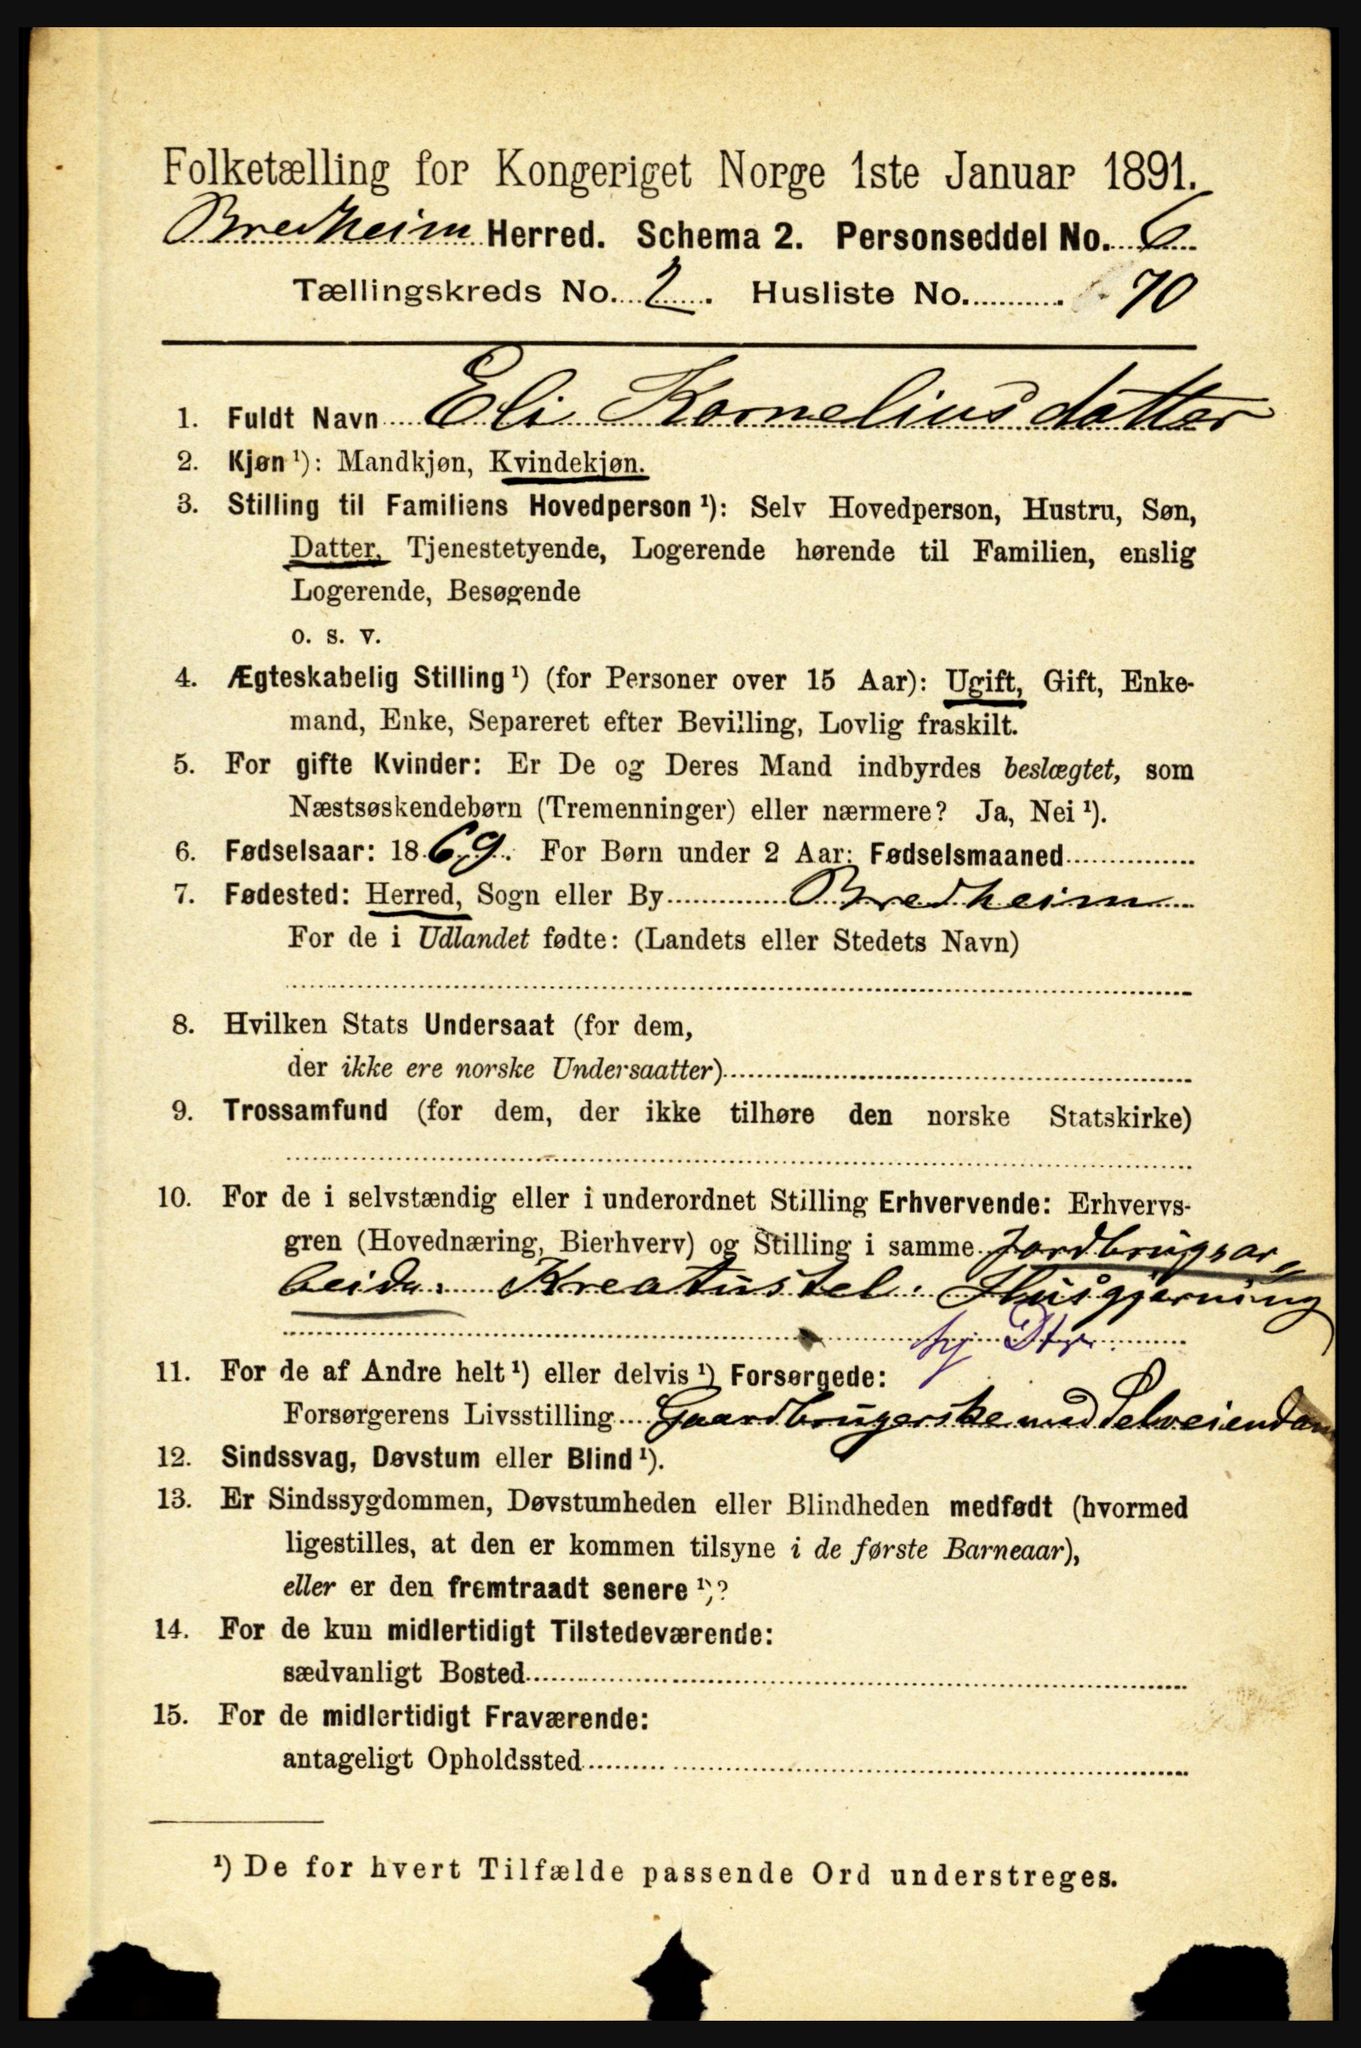 Folketælling for Kongeriget Norge 1ste Januar 1891.
Bredheim Herred. Schema 2. Personseddel No. 6
Tællingskreds No. 2. Husliste No. 70
1. Fuldt Navn Eli Korneliusdatter
2. Kjøn ¹): Mandkjøn, Kvindekjøn.
3. Stilling til Familiens Hovedperson ¹): Selv Hovedperson, Hustru, Søn,
Datter, Tjenestetyende, Logerende hørende til Familien, enslig
Logerende, Besøgende
o. s. v.
4. Ægteskabelig Stilling ¹) (for Personer over 15 Aar): Ugift, Gift, Enke-
mand, Enke, Separeret efter Bevilling, Lovlig fraskilt.
5. For gifte Kvinder: Er De og Deres Mand indbyrdes beslægtet, som
Næstsøskendebørn (Tremenninger) eller nærmere? Ja, Nei ¹).
6. Fødselsaar: 1869. For Børn under 2 Aar: Fødselsmaaned
7. Fødested: Herred, Sogn eller By Bredheim
For de i Udlandet fødte: (Landets eller Stedets Navn)
8. Hvilken Stats Undersaat (for dem,
der ikke ere norske Undersaatter)
9. Trossamfund (for dem, der ikke tilhøre den norske Statskirke)
10. For de i selvstændig eller i underordnet Stilling Erhvervende: Erhvervs-
gren (Hovednæring, Bierhverv) og Stilling i samme Jordbrugsar„
beide: Kreaturstel: Husgjerning
11. For de af Andre helt ¹) eller delvis ¹) Forsørgede:
Forsørgerens Livsstilling Gaardbrugerske med Selveiendom
12. Sindssvag, Døvstum eller Blind ¹).
13. Er Sindssygdommen, Døvstumheden eller Blindheden medfødt (hvormed
ligestilles, at den er kommen tilsyne i de første Barneaar),
eller er den fremtraadt senere ¹)?
14. For de kun midlertidigt Tilstedeværende:
sædvanligt Bosted
15. For de midlertidigt Fraværende:
antageligt Opholdssted
¹) De for hvert Tilfælde passende Ord understreges.